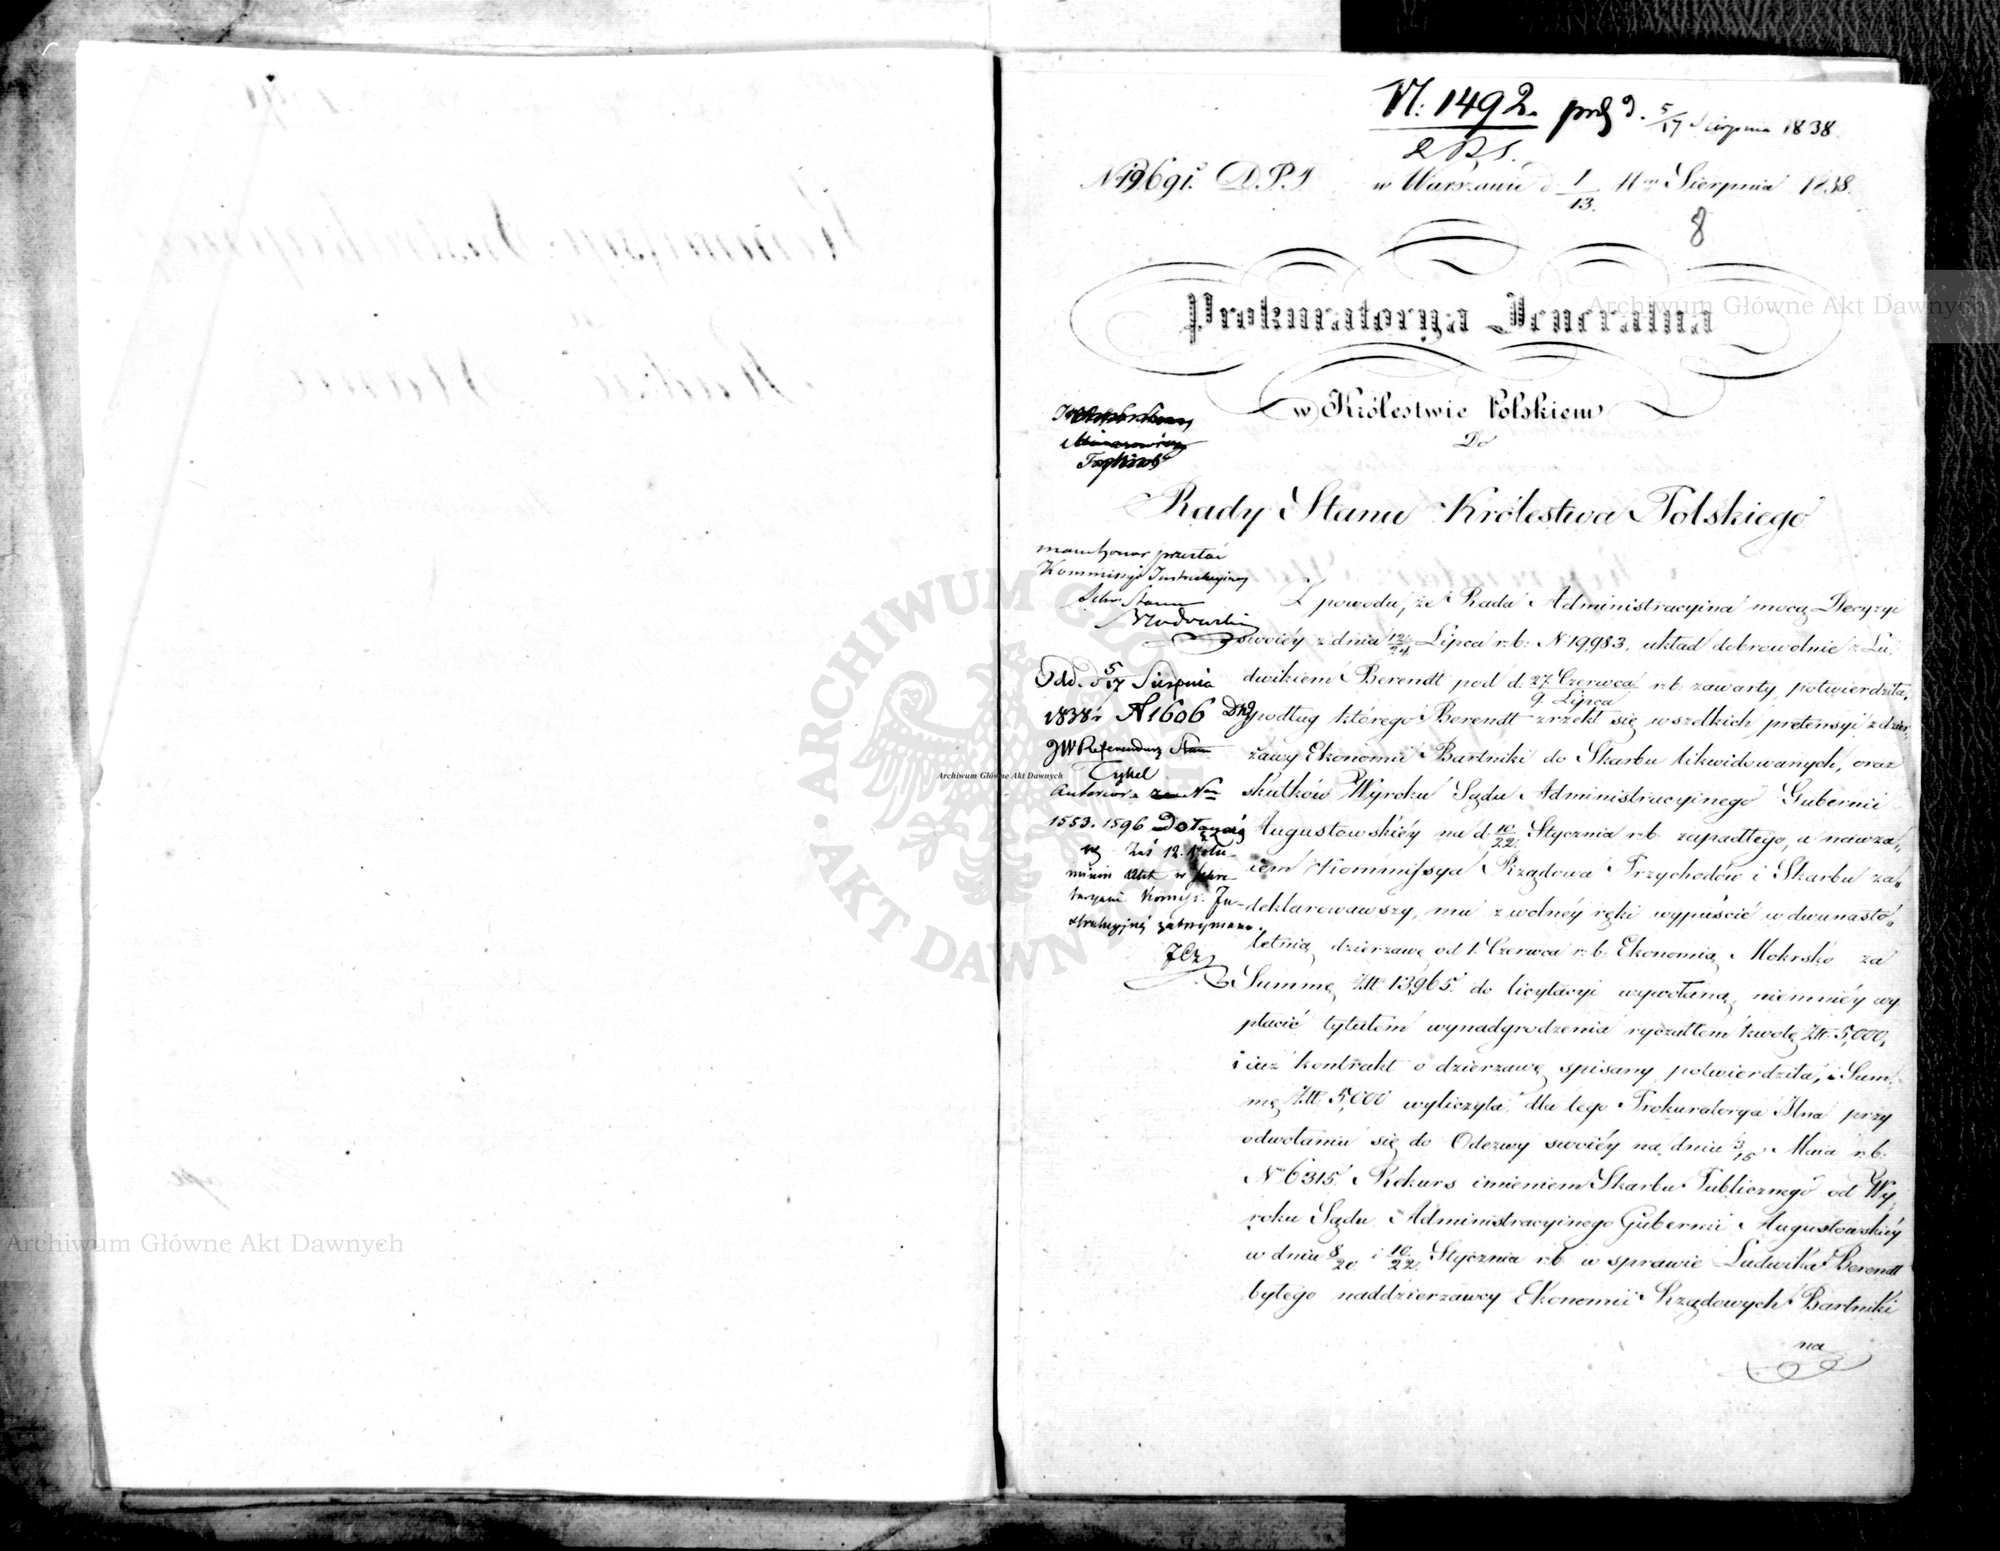 N. 1492. d. 5/17 Sierpnia 1838.
N 19691. D.P.I w Warszawie d 1/13. Sierpnia 1838.
8
Prokuratorya Jeneralna
w Królestwie Polskiem
Do
Rady Stanu Królestwa Polskiego
przesłać
Kommissyi Instrukcyiney
Sekr: Stanu
Odd. d 5/17 Sierpnia
1838 r N 1606
JW Referendarz Stanu
Tykel
1553. 1596 Dołączaią
się Zaś 12. Volu-
minów Akt w Sekre-
taryacie Kommiss. In-
strukcyinéy zatrzymano.
Z powodu, że Rada Administracyina mocą Decyzyi
swoiéy z dnia 12/24 Lipca r.b. N 19,983. układ dobrowolnie z Lu-
dwikiem Berendt pod d. 27 Czerwca/9 Lipca r.b. zawarty, potwierdziła,
podług którego Berendt zrzekł się wszelkich pretensyi z dzier-
żawy Ekonomii Bartniki do Skarbu likwidowanych, oraz
skutków Wyroku Sądu Administracyinego Gubernii
Augustowskiéy na d. 10/22 Stycznia r.b. zapadłego, a nawza-
iem Kommissya Rządowa Przychodów i Skarbu za-
deklarowawszy, mu z wolnéy ręki wypuścić w dwunasto-
letnią dzierżawę od 1. Czerwca r.b. Ekonomią Mokrsko za
Summę Złt 13,965. do licytacyi wywołaną, niemniéy wy-
płacić tytułem wynadgrodzenia ryczałtem kwotę Złt. 5,000,
i iuż kontrakt o dzierżawę spisany potwierdziła, i Sum-
mę Złt. 5,000 wyliczyła, dla tego Prokuratorya Jlna przy
odwołaniu się do Odezwy swoiéy na dniu 3/15 Maia r.b.
No 6315. Rekurs imieniem Skarbu Publicznego od Wy-
roku Sądu Administracyinego Gubernii Augustowskiéy
w dniu 8/20 i 10/22 Stycznia r.b. w sprawie Ludwika Berendt
byłego naddzierżawcy Ekonomii Rządowych Bartniki
na
Archiwum Główne Akt Dawnych
Archiwum Główne Akt Dawnych
Archiwum Główne Akt Dawnych
ARCHIWUM GŁÓWNE AKT DAWNYCH